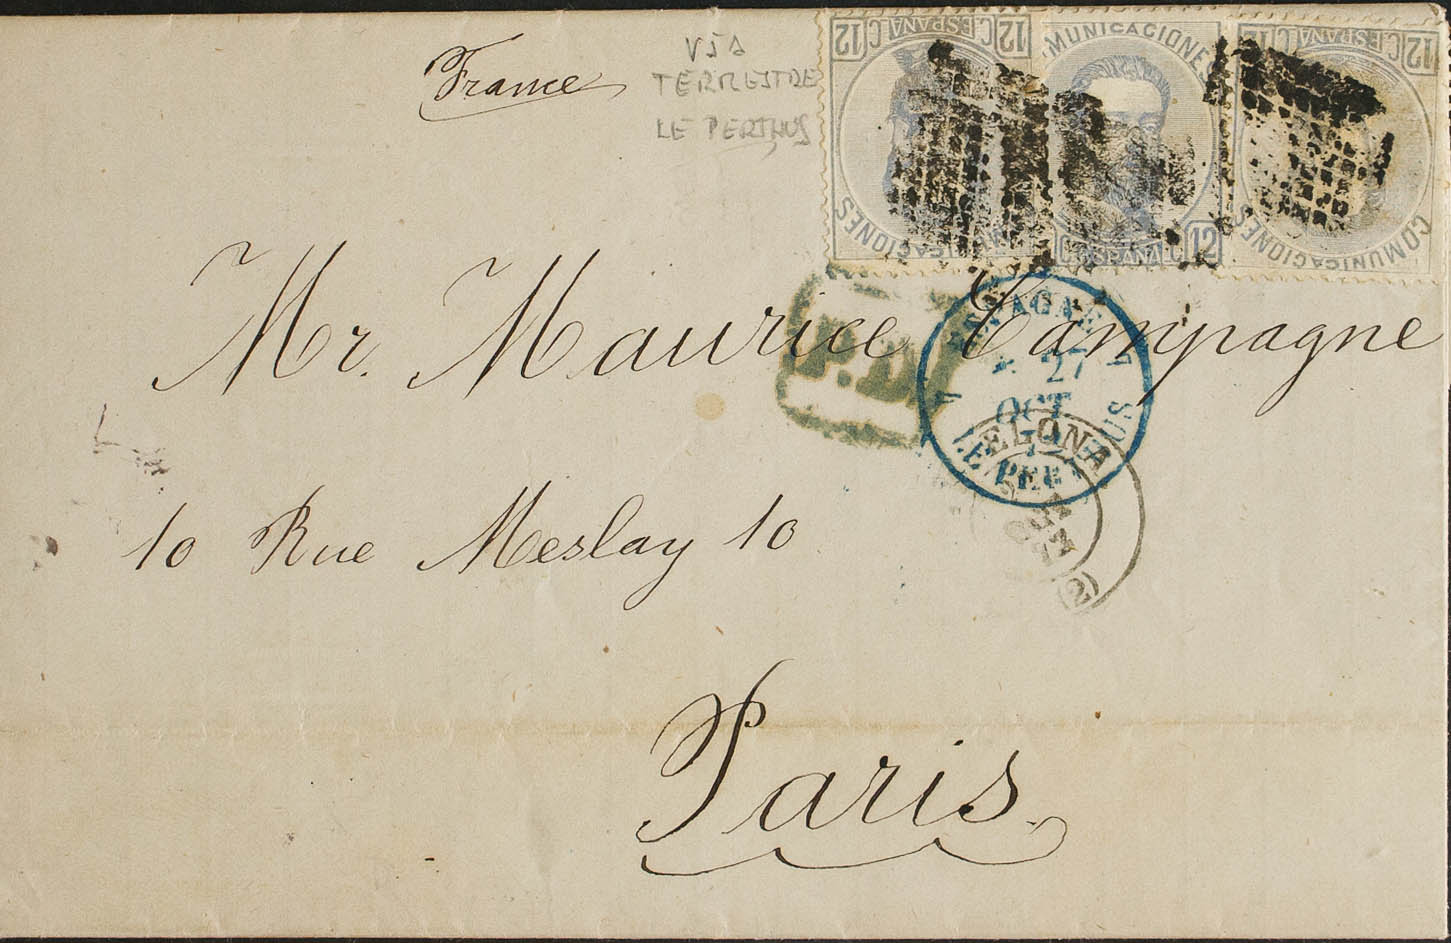 France
VIA
TERRESTRE
LE PERTHUS
12 C. ESPAÑA C. 12
COMUNICACIONES
COMUNICACIONES
12 C. ESPAÑA C. 12
12 C. ESPAÑA C. 12
COMUNICACIONES
Mr. Maurice Campagne
P.D.
ESPAGNE
27
OCT
ELONA
(2)
10 Rue Meslay 10
Paris